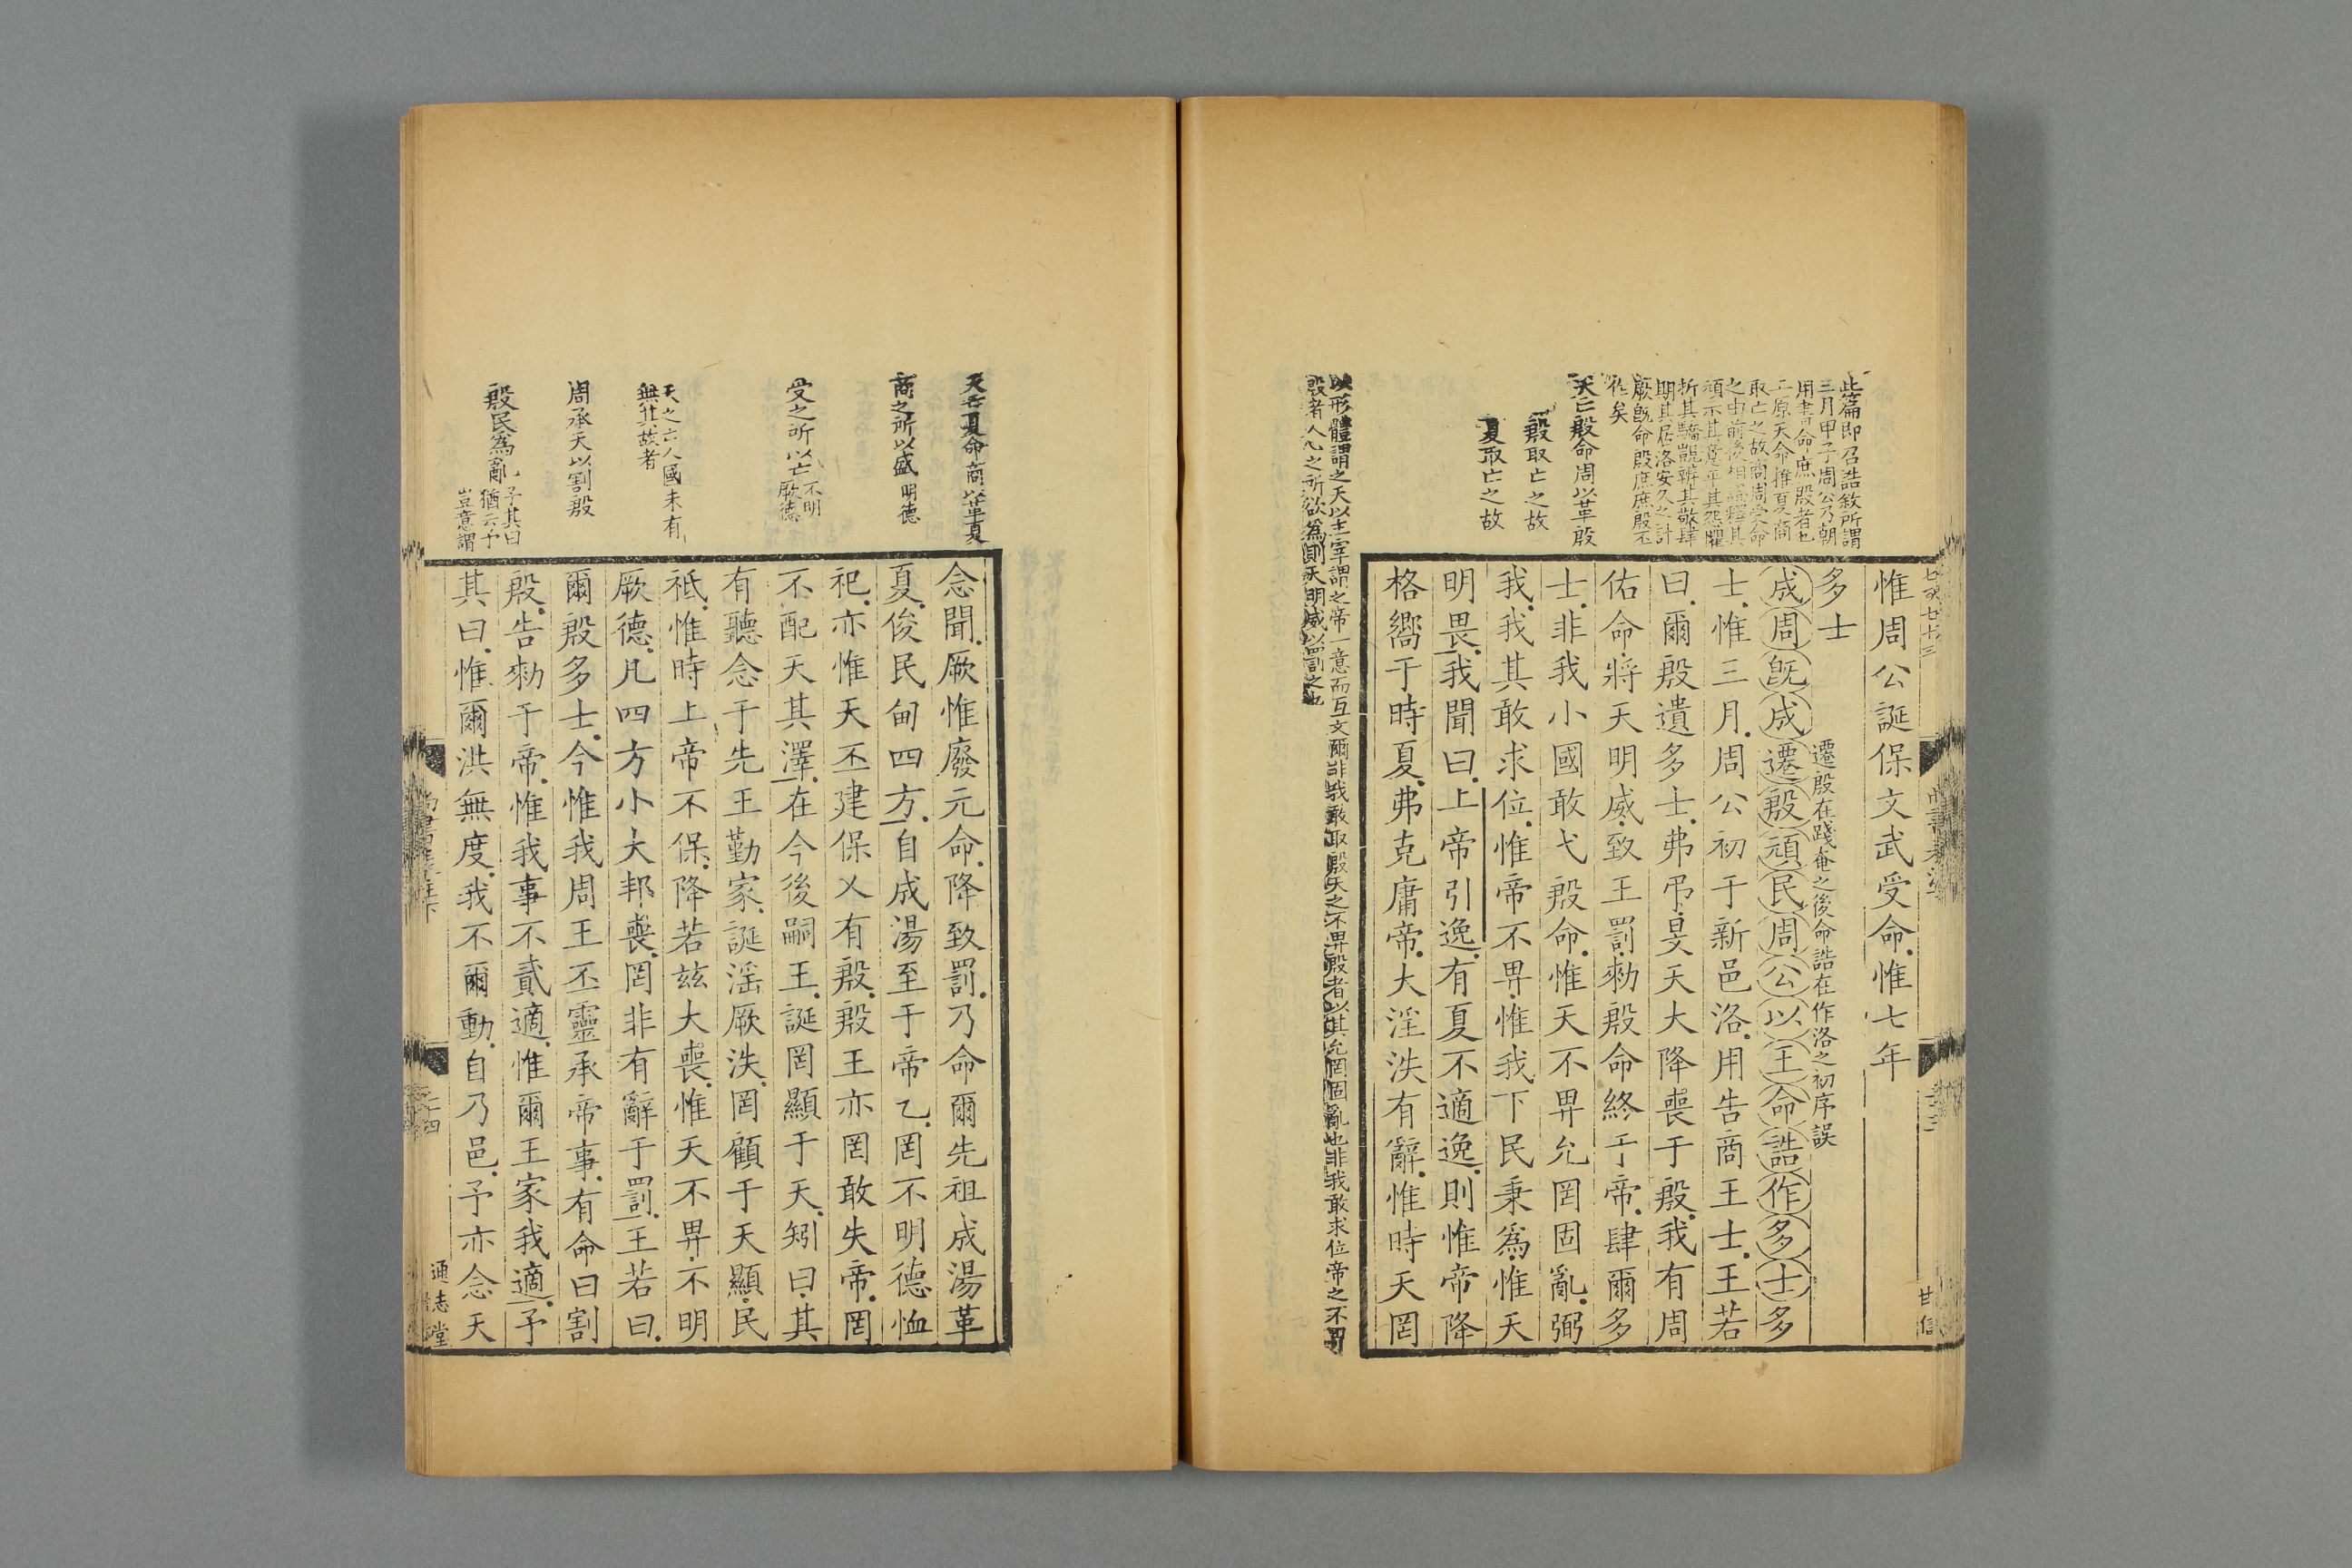 此篇即召誥敘所謂
三月甲子周公乃朝
用書命庶殷者也
一原天命推夏商
取亡之故商周受命
折其驕覬辨其敬肆
期其居洛安久之計
厥既命殷庶庶殷丕
作矣
天亡殷命周以革殷
殷取亡之故
夏取亡之故
惟周公誕保文武受命惟七年
多士
遷殷在踐奄之後命誥在作洛之初序誤
成周既成遷殷頑民周公以王命誥作多士多
士惟三月周公初于新邑洛用告商王士王若
曰爾殷遺多士弗弔旻天大降喪于殷我有周
佑命將天明威致王罰勑殷命終于帝肆爾多
士非我小國敢弋殷命惟天不畀允罔固亂弼
我我其敢求位惟帝不畀惟我下民秉為惟天
明畏我聞曰上帝引逸有夏不適逸則惟帝降
格嚮于時夏弗克庸帝大淫泆有辭惟時天罔
以形體謂之天以主宰謂之帝一意而互文爾非我敢取殷天之不畀殷者以其允罔固亂也非我敢求位帝之不畀
殷者人心之所欲為則天明威以罰之也
天去夏命商以革夏
商之所以盛明德
受之所以亡不明
厥德
天之亡人國未有
無其故者
周承天以割殷
殷民為亂予其曰
猶云予
豈意謂
念聞厥惟廢元命降致罰乃命爾先祖成湯革
夏俊民甸四方自成湯至于帝乙罔不明德恤
祀亦惟天丕建保乂有殷殷王亦罔敢失帝罔
不配天其澤在今後嗣王誕罔顯于天矧曰其
有聽念于先王勤家誕淫厥泆罔顧于天顯民
祗惟時上帝不保降若茲大喪惟天不畀不明
厥德凡四方小大邦喪罔非有辭于罰王若曰
爾殷多士今惟我周王丕靈承帝事有命曰割
殷告勑于帝惟我事不貳適惟爾王家我適予
其曰惟爾洪無度我不爾動自乃邑予亦念天
通志堂